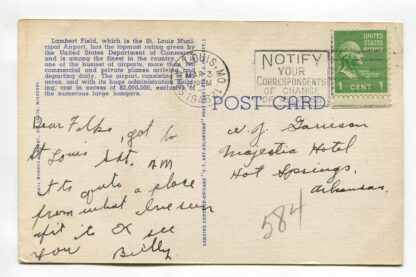 Lambert Field, which is the St. Louis Muni-
cipal Airport, has the topmost rating given by
the United States Department of Commerce
and is among the finest in the country
one of the busiest of airports, more than
commercial and private planes arriving
departing daily. The airport, consisting of
acres, and with its huge administration build-
ing, cost in excess of $2,000,000, exclusive of
the numerous large hangars.
ST. LOUIS, MO.
NOTIFY
YOUR
CORRESPONDENTS
OF CHANGE
UNITED
STATES
POSTAGE
1 CENT 1
POST CARD
Dear Folks, got to
St Louis Sat. AM
Its quite a place
from what Ive seen
of it so
you Billy
W. J. Garrison
Majestic Hotel
Hot Springs,
Arkansas.
584
GENUINE CURTEICH-CHICAGO "C.T. ART-COLORTONE" POST CARD